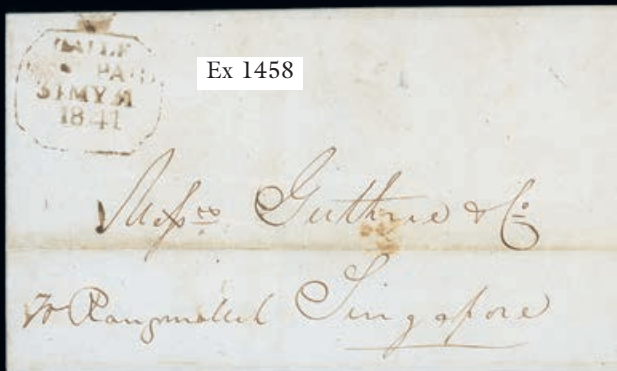 GALLE
PAID
31 MY 31
1841
Ex 1458
Messrs Guthrie & Co.
Singapore